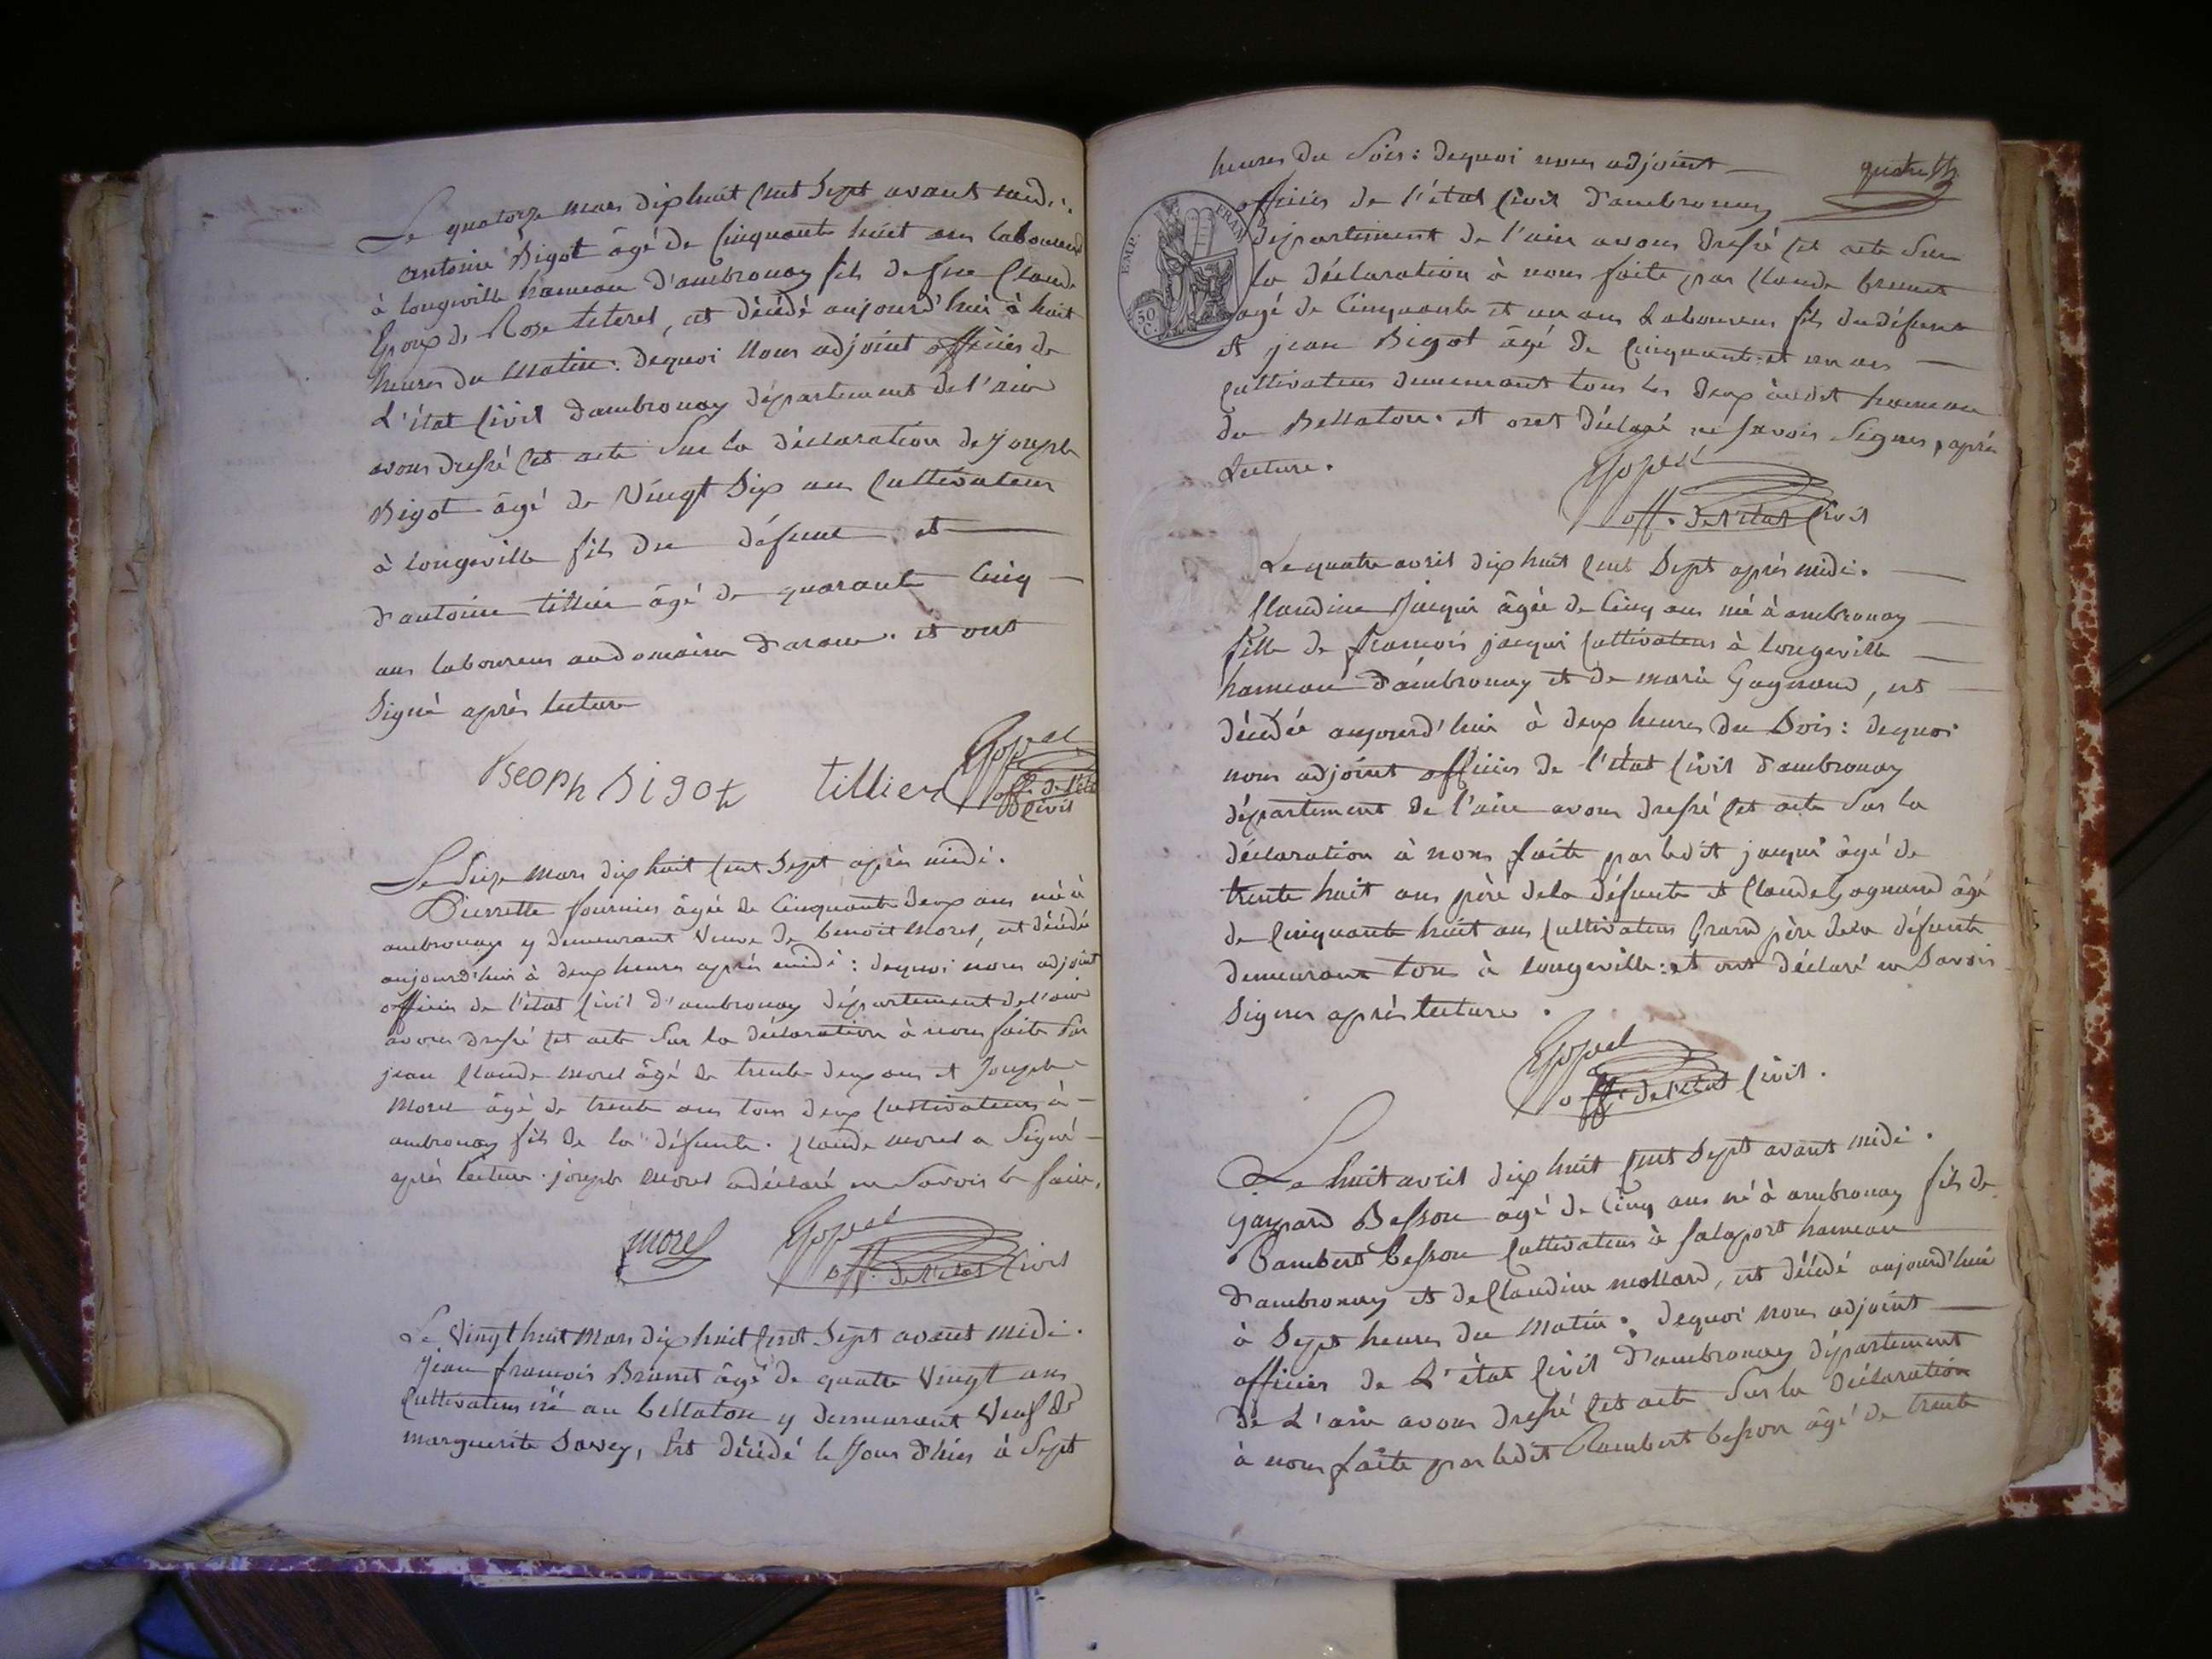 Le quatorze mars dix huit cent Sept avant midi.
antoine Bigot âgé de Cinquante huit ans laboureur
à longeville hameau d'ambronay fils de feu Claude
Epoux de Rose teterel, est décédé aujourd'hui à huit
heures du Matin: dequoi Nous adjoint officier de
L'état civil d'ambronay département de l'ain
avons dressé cet acte Sur la déclaration de joseph
Bigot âgé de Vingt Six ans cultivateur
à longeville fils du défunt et
d'antoine tillier âgé de quarante Cinq
ans laboureur au domaine et ont
Signé après lecture
Joseph Bigot tillier
off. de l'état
civil
Le Seize mars dix huit cent Sept après midi.
Pierrette fournier âgée de Cinquante deux ans né à
ambronay y demeurant Veuve de benoit Morel, est décédée
aujourd'hui à deux heures après midi: dequoi nous adjoint
officier de l'état civil d'ambronay département de l'ain
avons dressé cet acte Sur la déclaration à nous faite Par
jean Claude morel âgé de trente deux ans et Joseph
Morel âgé de trente ans tous deux cultivateurs à
ambronay fils de la défunte. Claude morel a Signé
après lecture. joseph Morel a déclaré ne Savoir le faire.
morel
off. de l'état civil
Le Vingt huit Mars dix huit cent Sept avant midi.
jean francois Brunet âgé de quatre Vingt ans
Cultivateur né au bellaton y demeurant Veuf de
marguerite Savey, Est décédé le Jour d'hier à Sept
heures du Soir: dequoi nous adjoint
officier de l'état civil d'ambronay
EMP. FRAN
50 C.
département de l'ain avons dressé cet acte Sur
la déclaration à nous faite par Claude brunet
agé de Cinquante et un ans Laboureur fils du défunt
et jean Bigot âgé de Cinquante et un ans
cultivateur demeurant tous les deux audit hameau
du Bellaton. et ont déclaré ne Savoir Signer, après
Lecture.
off. de l'état civil
Le quatre avril dix huit cent Sept après midi.
Claudine Jacqui âgée de Cinq ans né à ambronay
fille de francois jacqui cultivateur à longeville
hameau d'ambronay et de marie Gagnaud, est
décédée aujourd'hui à deux heures du Soir: dequoi
nous adjoint officier de l'état civil d'ambronay
département de l'ain avons dressé cet acte Sur la
déclaration à nous faite par ledit jacqui âgé de
trente huit ans père dela défunte et Claude Gagnaud âgé
de Cinquante huit ans cultivateur Grand père dela défunte
demeurant tous à longeville: et ont déclaré ne Savoir
Signer après lecture.
off. de l'état civil.
Le huit avril dix huit cent Sept avant midi.
Gaspard Besson âgé de Cinq ans né à ambronay fils de
Rambert besson cultivateur à Salaport hameau
d'ambronay et de Claudine mollard, est décédé aujourd'hui
à Sept heures du Matin. dequoi nous adjoint
officier de L'état civil d'ambronay département
de L'ain avons dressé cet acte Sur la déclaration
à nous faite par ledit Rambert besson âgé de trente